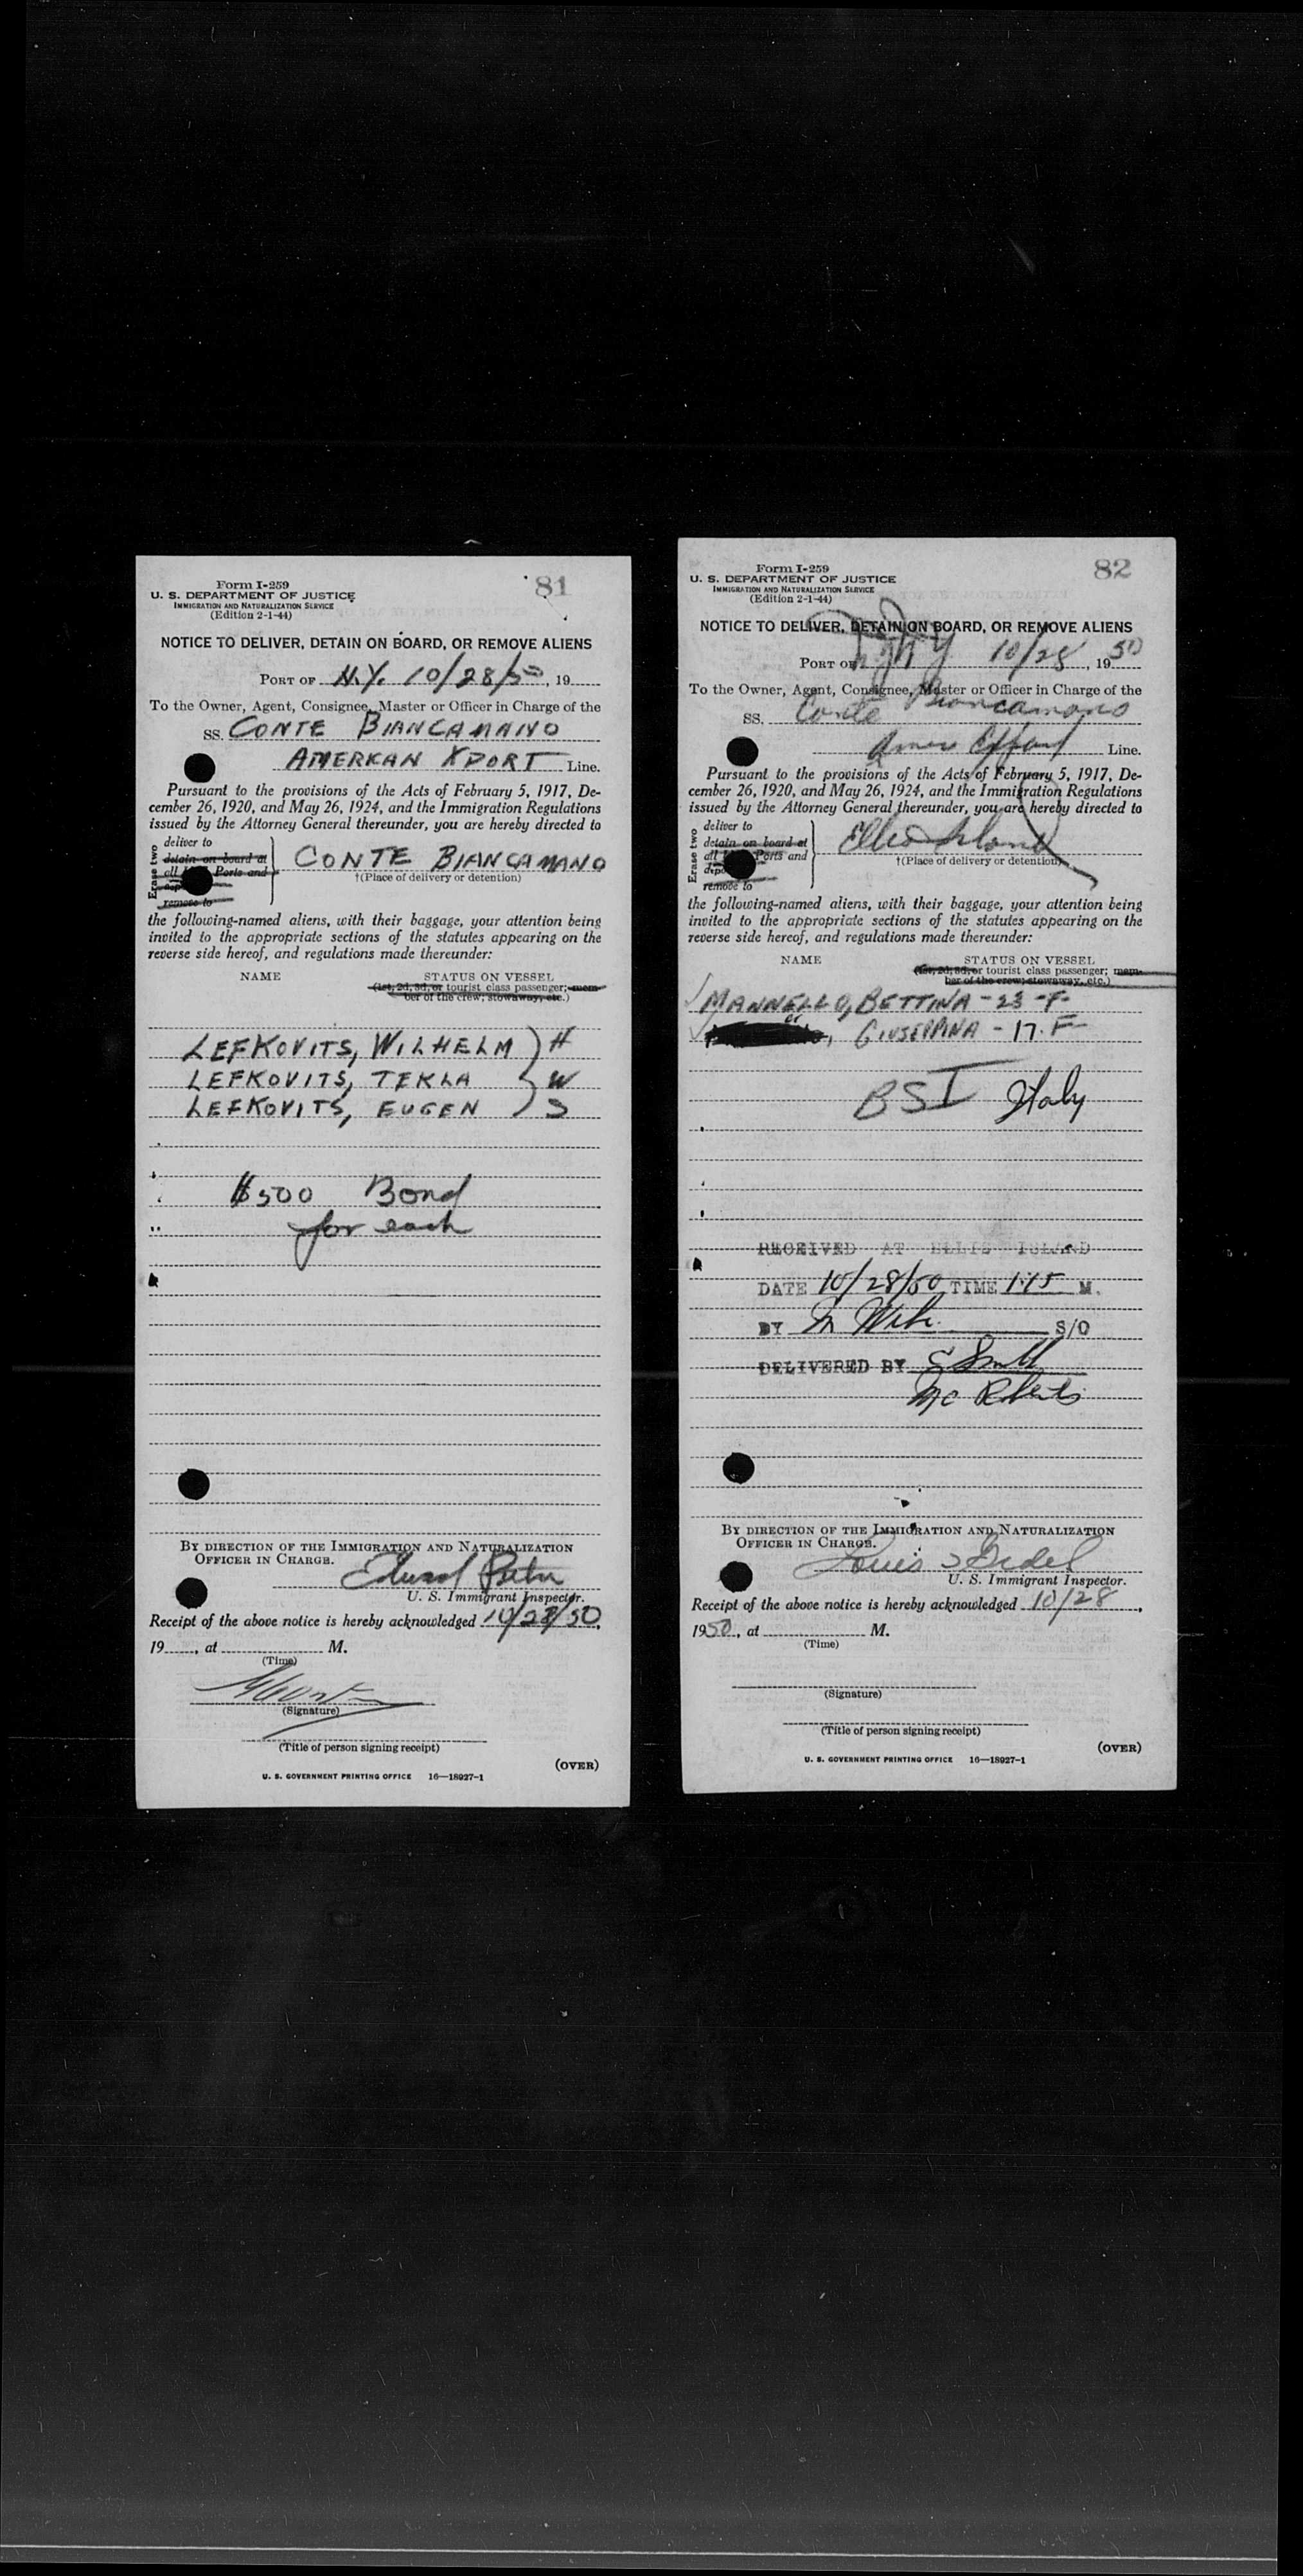 Form I-259
81
U. S. DEPARTMENT OF JUSTICE
IMMIGRATION AND NATURALIZATION SERVICE
(Edition 2-1-44)
NOTICE TO DELIVER, DETAIN ON BOARD, OR REMOVE ALIENS
PORT OF N.Y. 10/28/50, 19
To the Owner, Agent, Consignee, Master or Officer in Charge of the
SS. CONTE BIANCAMANO
AMERICAN XPORT Line.
Pursuant to the provisions of the Acts of February 5, 1917, De-
cember 26, 1920, and May 26, 1924, and the Immigration Regulations
issued by the Attorney General thereunder, you are hereby directed to
Erase two
deliver to
detain on board at
all Ports and
remove to
CONTE BIANCAMANO
†(Place of delivery or detention)
the following-named aliens, with their baggage, your attention being
invited to the appropriate sections of the statutes appearing on the
reverse side hereof, and regulations made thereunder:
NAME STATUS ON VESSEL
(1st, 2d, 3d, or tourist class passenger; mem-
ber of the crew; stowaway, etc.)
LEFKOVITS, WILHELM } H
LEFKOVITS, TEKLA } W
LEFKOVITS, EUGEN } S
$500 Bond
for each
BY DIRECTION OF THE IMMIGRATION AND NATURALIZATION
OFFICER IN CHARGE.
U. S. Immigrant Inspector.
Receipt of the above notice is hereby acknowledged 10/28/50,
19, at M.
(Time)
(Signature)
(Title of person signing receipt)
(OVER)
U. S. GOVERNMENT PRINTING OFFICE 16—18927-1
Form I-259
82
U. S. DEPARTMENT OF JUSTICE
IMMIGRATION AND NATURALIZATION SERVICE
(Edition 2-1-44)
NOTICE TO DELIVER, DETAIN ON BOARD, OR REMOVE ALIENS
PORT OF N Y 10/28, 1950
To the Owner, Agent, Consignee, Master or Officer in Charge of the
SS. Conte Biancamano
Amer Export Line.
Pursuant to the provisions of the Acts of February 5, 1917, De-
cember 26, 1920, and May 26, 1924, and the Immigration Regulations
issued by the Attorney General thereunder, you are hereby directed to
Erase two
deliver to
detain on board at
all Ports and
remove to
Ellis Island
†(Place of delivery or detention)
the following-named aliens, with their baggage, your attention being
invited to the appropriate sections of the statutes appearing on the
reverse side hereof, and regulations made thereunder:
NAME STATUS ON VESSEL
(1st, 2d, 3d, or tourist class passenger; mem-
ber of the crew; stowaway, etc.)
MANNELLO, BETTINA - 23 - F
, GIUSEPPINA - 17. F
BSI Italy
RECEIVED AT ELLIS ISLAND
DATE 10/28/50 TIME 1:15 M.
BY S/O
DELIVERED BY E Smith
Mc Roberts
BY DIRECTION OF THE IMMIGRATION AND NATURALIZATION
OFFICER IN CHARGE.
Louis
U. S. Immigrant Inspector.
Receipt of the above notice is hereby acknowledged 10/28,
1950, at M.
(Time)
(Signature)
(Title of person signing receipt)
(OVER)
U. S. GOVERNMENT PRINTING OFFICE 16—18927-1